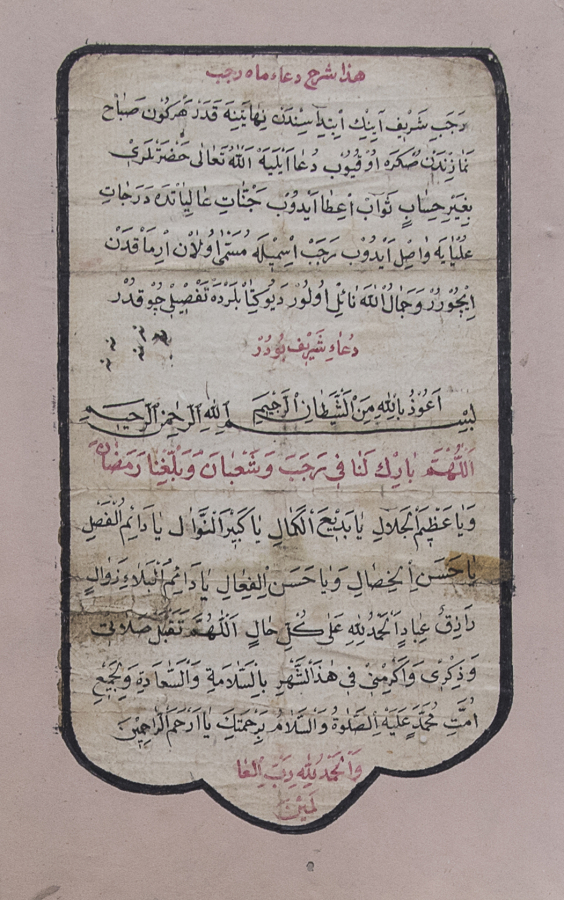 هذا شرح دعاء ماه رجب
رَجَبِ شَرِيفِ اَيِنِكْ اِبْتِدَاسِنْدَنْ نِهَايَتِنَهِ قَدَرْ هَرْكُونْ صَبَاحْ
نَمَازِنْدَنْ صُكْرَه اوُقُيوُبْ دُعَا اَيْلَيَهْ اَللهُ تَعَالٰى حَضْرَتْلَرِى
بِغَيْرِ حِسَابٍ ثَوَابْ اِعْطَا اَيدُوبْ جَنَّاتِ عَالِيَاتْدَه دَرَجَاتِ
عُلْيَايَه وَاصِلْ اَيدُوبْ رَجَبْ اِسْمِيلَه مُسَمّٰى اوُلَانْ اِرْمَاقْدَنْ
اِيْچُورُرْ وَجَمَالُ الله نَائِلْ اوُلُورْ دَيوُ كِتَابْلَرْدَه تَفْصِيلِى چُوقْدُرْ
دُعَاءِ شَرِيفْ بُودُرْ
اَعُوذُ بِاللهِ مِنَ الشَّيْطَانِ الرَّجِيمِ
بِسْمِ اللهِ الرَّحْمٰنِ الرَّحِيمِ
اَللّٰهُمَّ بَارِكْ لَنَا فِى رَجَبَ وَشَعْبَانَ وَبَلِّغْنَا رَمَضَانَ
وَيَا عَظِيمَ الْجَلَالِ يَا بَدِيعَ الْكَمَالِ يَا كَبِيرَ النَّوَالِ يَا دَائِمَ الْفَضْلِ
يَا حَسَنَ الْخِصَالِ وَيَا حَسَنَ الْفِعَالِ يَا دَائِمَ الْبَلَاءِ زَوَالٍ
رَازِقُ عِبَادٍ اَلْحَمْدُ لِلّٰهِ عَلٰى كُلِّ حَالٍ اَللّٰهُمَّ تَقَبَّلْ صَلَاتِى
وَذِكْرِى وَاَكْرِمْنِى فِى هٰذَا الشَّهْرِ بِالسَّلَامَةِ وَالسَّعَادَةِ وَلِجَمِيعِ
اُمَّتِ مُحَمَّدٍ عَلَيْهِ الصَّلٰوةُ وَالسَّلَامُ بِرَحْمَتِكَ يَا اَرْحَمَ الرَّاحِمِينَ
وَالْحَمْدُ لِلّٰهِ رَبِّ الْعَا
لَمِينَ